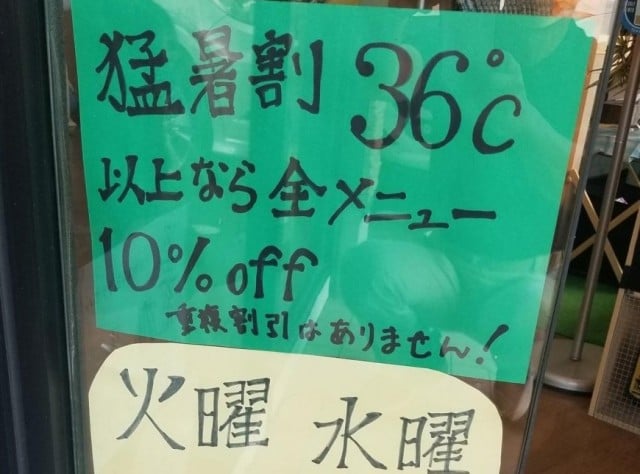 猛暑割 36℃
以上なら全メニュー
10% off
重複割引はありません!
火曜 水曜